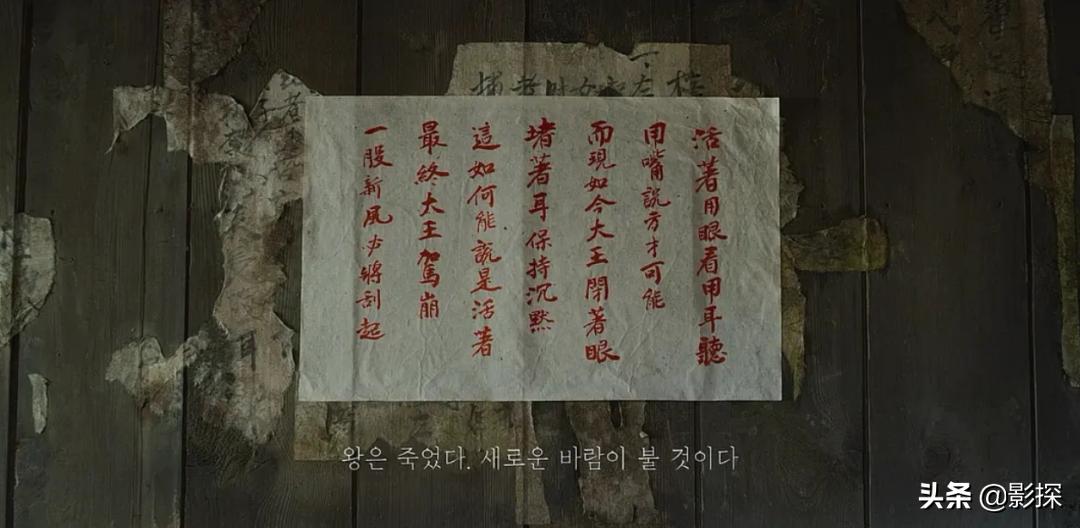 活著用眼看用耳聽
用嘴說方才可能
而現如今大王閉著眼
堵著耳保持沉默
這如何能說是活著
最終太王駕崩
一股新風必將刮起
왕은 죽었다. 새로운 바람이 불 것이다
头条 @影探